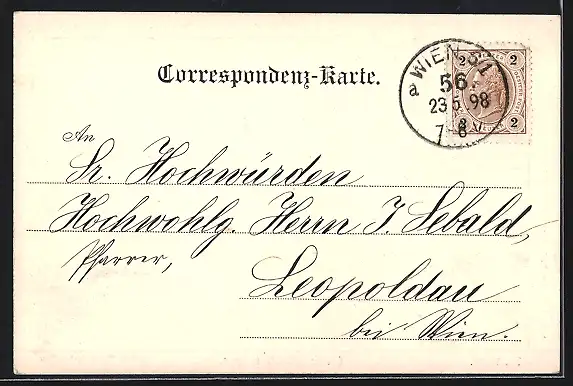 Correspondenz-Karte.
WIEN 51
56.
a
23 5 98
7-8
2 2
2 2
An
Sr. Hochwürden
Hochwohlg. Herrn J. Sebald,
Pfarrer,
Leopoldau
bei Wien.